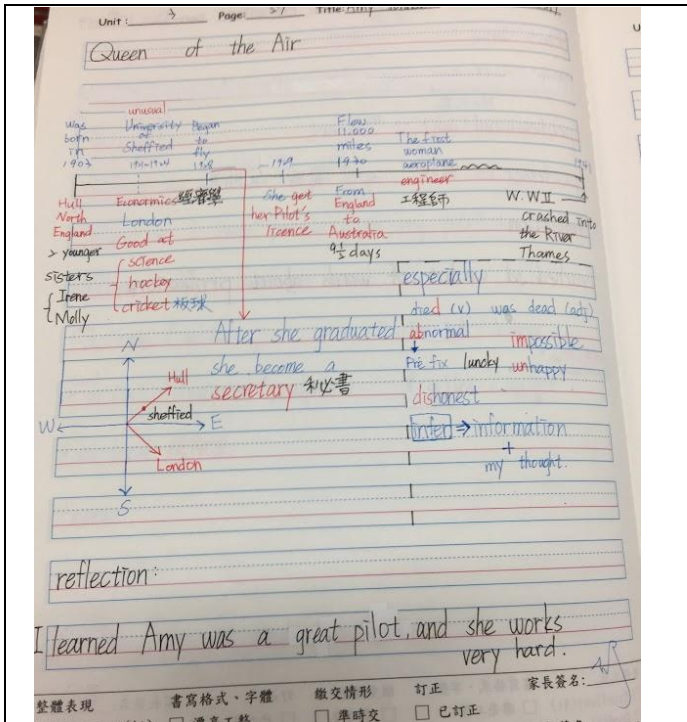 Unit: 3 Page: 27 Title: Amy
Queen of the Air
unusual
Was born in 1903
University of Sheffield
Began to fly 1928
1929
Flew 11.000 miles 1930
The first woman aeroplane engineer 工程師
1941
Hull North England
Economics 經濟學
London
Good at
science
hockey
cricket 板球
She get her Pilot's licence
From England to Australia
9½ days
W.WII crashed into the River Thames
2 younger sisters
Irene
Molly
After she graduated
she become a
secretary 秘書
especially
died (v) was dead (adj)
abnormal impossible
Pre fix luncky unhappy
dishonest
infer ⇒ information
+
my thought.
N
Hull
sheffied
W E
London
S
reflection:
I learned Amy was a great pilot, and she works
very hard.
整體表現 書寫格式、字體 繳交情形 訂正 家長簽名:
□ 準時交 □ 已訂正